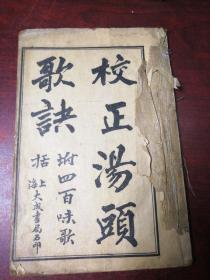 校正湯頭
歌訣
附四百味歌
括
上海大成書局石印